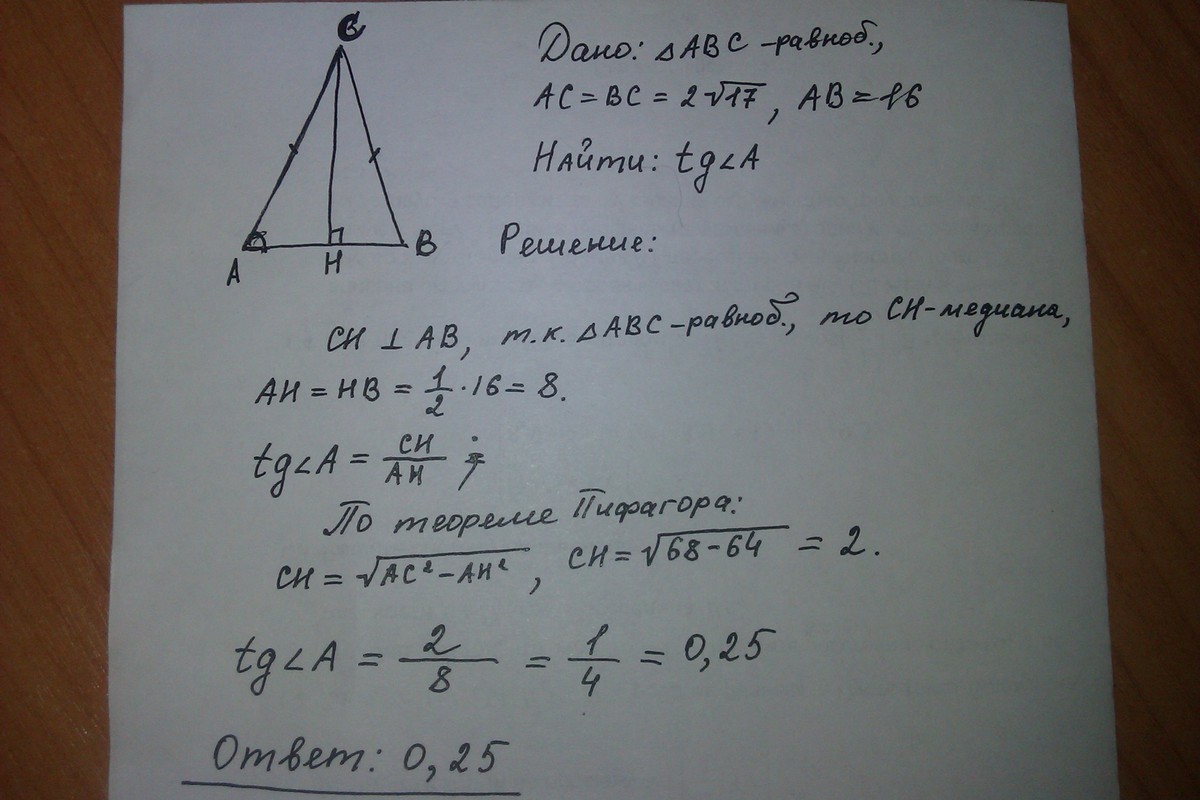 C
A
H
B
Дано: △ABC - равноб.,
AC = BC = 2√17, AB = 16
Найти: tg∠A
Решение:
CH ⊥ AB, т.к. △ABC - равноб., то CH - медиана,
AH = HB = 1/2 · 16 = 8.
tg∠A = CH/AH ;
По теореме Пифагора:
CH = √(AC² - AH²), CH = √(68 - 64) = 2.
tg∠A = 2/8 = 1/4 = 0,25
Ответ: 0,25